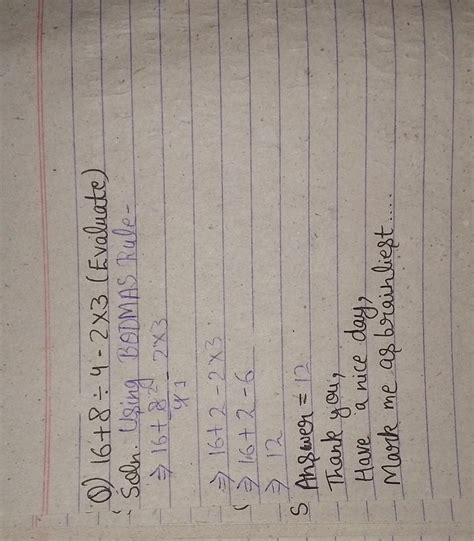 Q) 16+8÷4-2×3 (Evaluate)
Soln. Using BODMAS Rule-
⇒ 16+8/4 - 2×3
⇒ 16+2-2×3
⇒ 16+2-6
⇒ 12
Answer = 12
Thank you,
Have a nice day,
Mark me as brainliest....